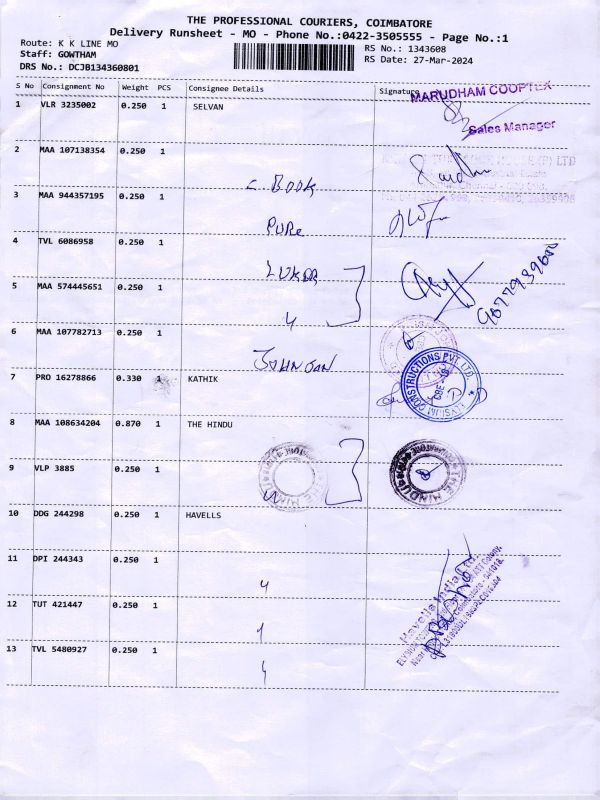 THE PROFESSIONAL COURIERS, COIMBATORE
Delivery Runsheet - MO - Phone No.:0422-3505555 - Page No.:1
Route: K K LINE MO
RS No.: 1343608
Staff: GOWTHAM
RS Date: 27-Mar-2024
DRS No.: DCJB134360801
S No Consignment No Weight PCS Consignee Details Signature
MARUDHAM COOPTEX
1 VLR 3235002 0.250 1 SELVAN
Sales Manager
2 MAA 107138354 0.250 1
BOOK
3 MAA 944357195 0.250 1
PURE
4 TVL 6086958 0.250 1
9877939600
5 MAA 574445651 0.250 1
6 MAA 107782713 0.250 1
JOHNSON
ELYSIUM CONSTRUCTIONS PVT LTD.
CBE - 18
7 PRO 16278866 0.330 1 KATHIK
8 MAA 108634204 0.870 1 THE HINDU
THE HINDU
THE HINDU
9 VLP 3885 0.250 1
10 DDG 244298 0.250 1 HAVELLS
Havells India Ltd.
11 DPI 244343 0.250 1
12 TUT 421447 0.250 1
13 TVL 5480927 0.250 1